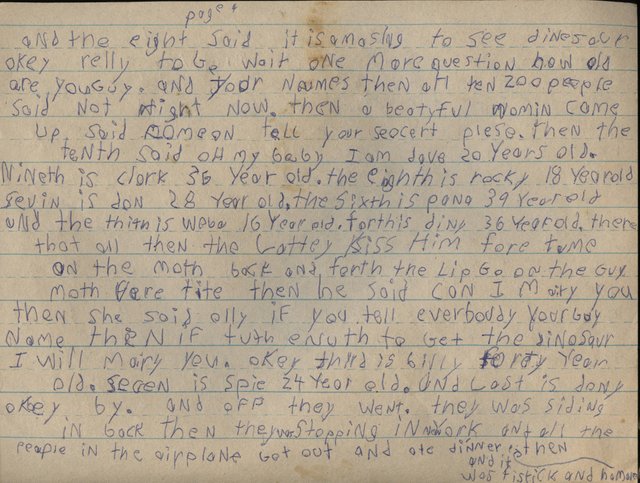 page 4
and the eight said it is amasing to see dinesour
okey relly to Go wait one More question how old
are you Guy. and your Naumes then all ten 200 people
said Not right Now. then a beatyful womin came
up said comeon tell your seocert plese. then the
tenth said oH my baby I am dave 20 Years old.
Nineth is clark 36 Year old. the eighth is rocky 18 Year old
sevin is don 28 Year old. the sixth is pana 39 Year old
and the thith is Weba 16 Year old. forth is diny 36 Year old. there
that all then the Lattey Kiss Him fore tume
on the moth back and forth the Lip Go on the Guy
moth Vere tite then he said can I Mairy you
then she said olly if you tell everboudy your Guy
Name theN if tuth enuth to Get the dinosaur
I will Mairy You. okey third is billy forty Year
old. Secen is Spie 24 Year old. and Last is dany
okey by. and off they went. they was siding
in back then they was stopping in Nework ant all the
people in the airplane Got out and ate dinner. then
and it
was fistick and